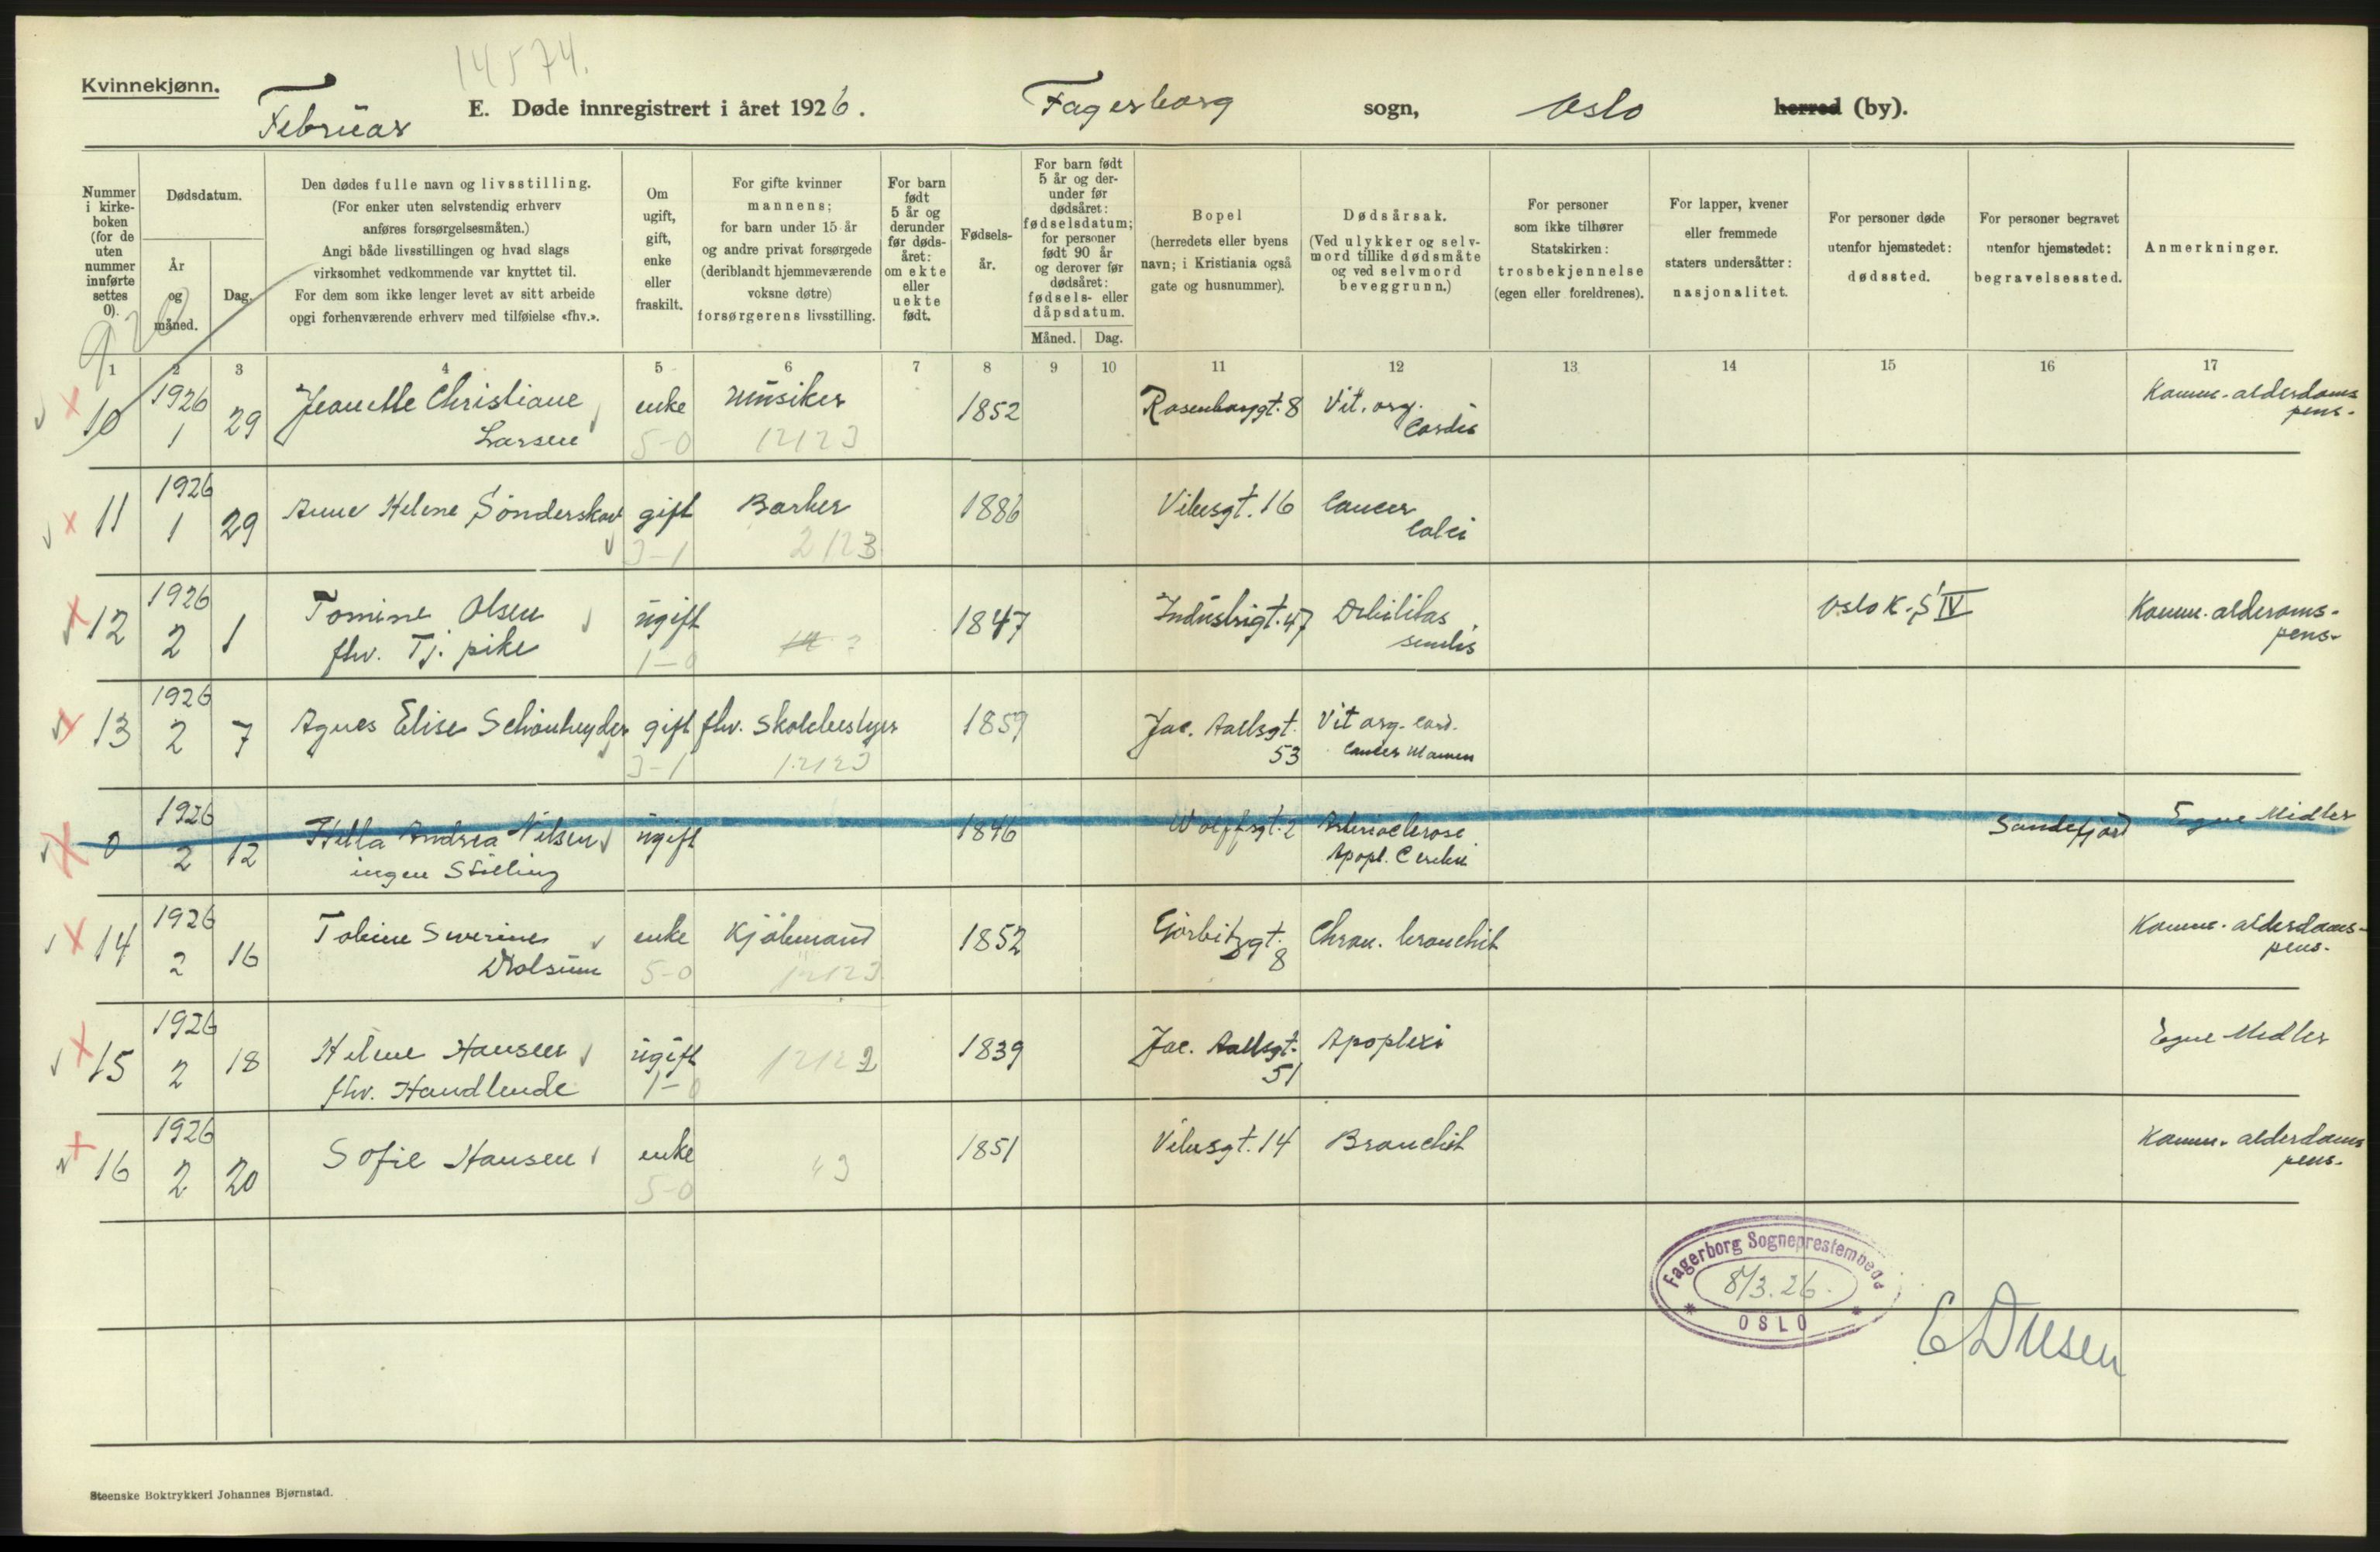 14574.
Kvinnekjønn.
Februar
E. Døde innregistrert i året 1926.
Fagerborg sogn,
Oslo herred (by).
Nummer i kirke-boken (for de uten nummer innførte settes 0).
Dødsdatum.
År og måned.
Dag.
Den dødes fulle navn og livsstilling.
(For enker uten selvstendig erhverv
anføres forsørgelsesmåten.)
Angi både livsstillingen og hvad slags
virksomhet vedkommende var knyttet til.
For dem som ikke lenger levet av sitt arbeide
opgi forhenværende erhverv med tilføielse «fhv.».
Om
ugift,
gift,
enke
eller
fraskilt.
For gifte kvinner
mannens;
for barn under 15 år
og andre privat forsørgede
(deriblandt hjemmeværende
voksne døtre)
forsørgerens livsstilling.
For barn
født
5 år og
derunder
før døds-
året:
om ekte
eller
uekte
født.
Fødsels-
år.
For barn født
5 år og der-
under før
dødsåret:
fødselsdatum;
for personer
født 90 år
og derover før
dødsåret:
fødsels- eller
dåpsdatum.
Måned. Dag.
Bopel
(herredets eller byens
navn; i Kristiania også
gate og husnummer).
Dødsårsak.
(Ved ulykker og selv-
mord tillike dødsmåte
og ved selvmord
beveggrunn.)
For personer
som ikke tilhører
Statskirken:
trosbekjennelse
(egen eller foreldrenes).
For lapper, kvener
eller fremmede
staters undersåtter:
nasjonalitet.
For personer døde
utenfor hjemstedet:
dødssted.
For personer begravet
utenfor hjemstedet:
begravelsessted.
Anmerkninger.
1 2 3 4 5 6 7 8 9 10 11 12 13 14 15 16 17
10 1926 1 29 Jeanette Christiane Larsen enke Musiker 1852 Rosenborggt. 8 Vit. org. Cordis Komm. alderdoms pens.
5-0 12123
11 1926 1 29 Anne Helene Sønderskov gift Barber 1886 Vibesgt. 16 Cancer Colei
3-1 2123
12 1926 2 1 Tomine Olsen fhv. Tj. pike ugift 1847 Industrigt. 47 Debilitas senilis Oslo K. S IV Komm. alderoms-pens.
1-0
13 1926 2 7 Agnes Elise Schønheyder gift fhv. Skolebestyrer 1859 Jac. Aallsgt. 53 Vit org. cord. Cancer Mamm
3-1 12123
0 1926 2 12 Nilsen ingen Stilling ugift 1846 Wolffsgt. 2 Arteriosclerose Apopl. Cerebri Sandefjord Egne Midler
14 1926 2 16 Tobine Severine Dolsum enke Kjøbmand 1852 Gørbitzgt. 8 Chron. bronchit Komm. alderdoms-pens.
5-0 12123
15 1926 2 18 Helene Hansen fhv. Handlende ugift 1839 Jac. Aallsgt. 51 Apoplexi Egne Midler
1-0 12122
16 1926 2 20 Sofie Hansen enke 1851 Vibesgt. 14 Bronchit Komm. alderdoms pens.
5-0
Fagerborg Sogneprestembede
8/3. 26.
OSLO
Steenske Boktrykkeri Johannes Bjørnstad.